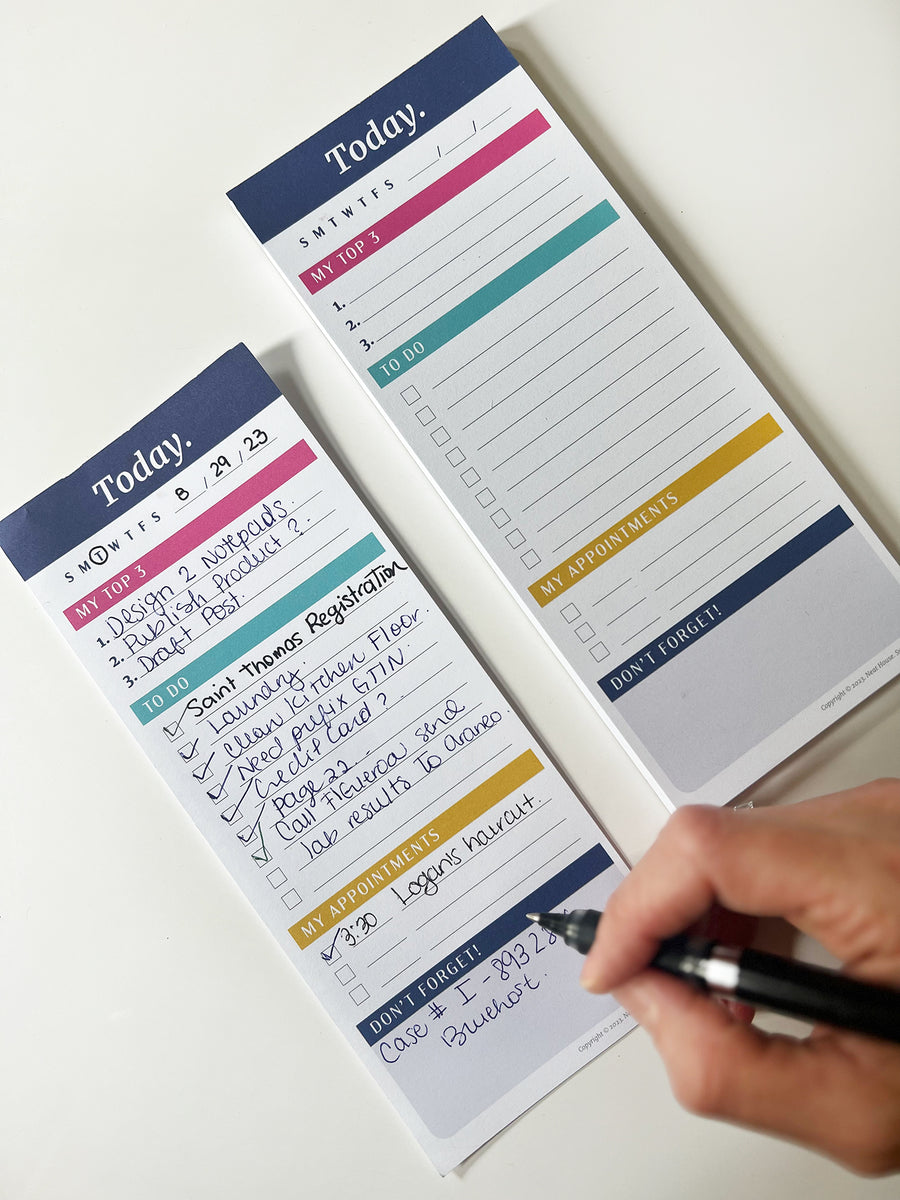 Today.
S M T W T F S __/__/__
MY TOP 3
1.
2.
3.
TO DO
MY APPOINTMENTS
DON'T FORGET!
Copyright © 2023. Neat House.
Today.
S M T W T F S 8 / 29 / 23
MY TOP 3
1. Design 2 Notepads.
2. Publish Product?.
3. Draft Post.
TO DO
Saint Thomas Registration
Laundry.
Clean Kitchen Floor.
Need prefix GTIN.
Credit Card?
page 22...
Call Figueroa send
lab results To Araneo.
MY APPOINTMENTS
3:30 Logan's haircut.
DON'T FORGET!
Case # I - 8932
Bluehost.
Copyright © 2023.